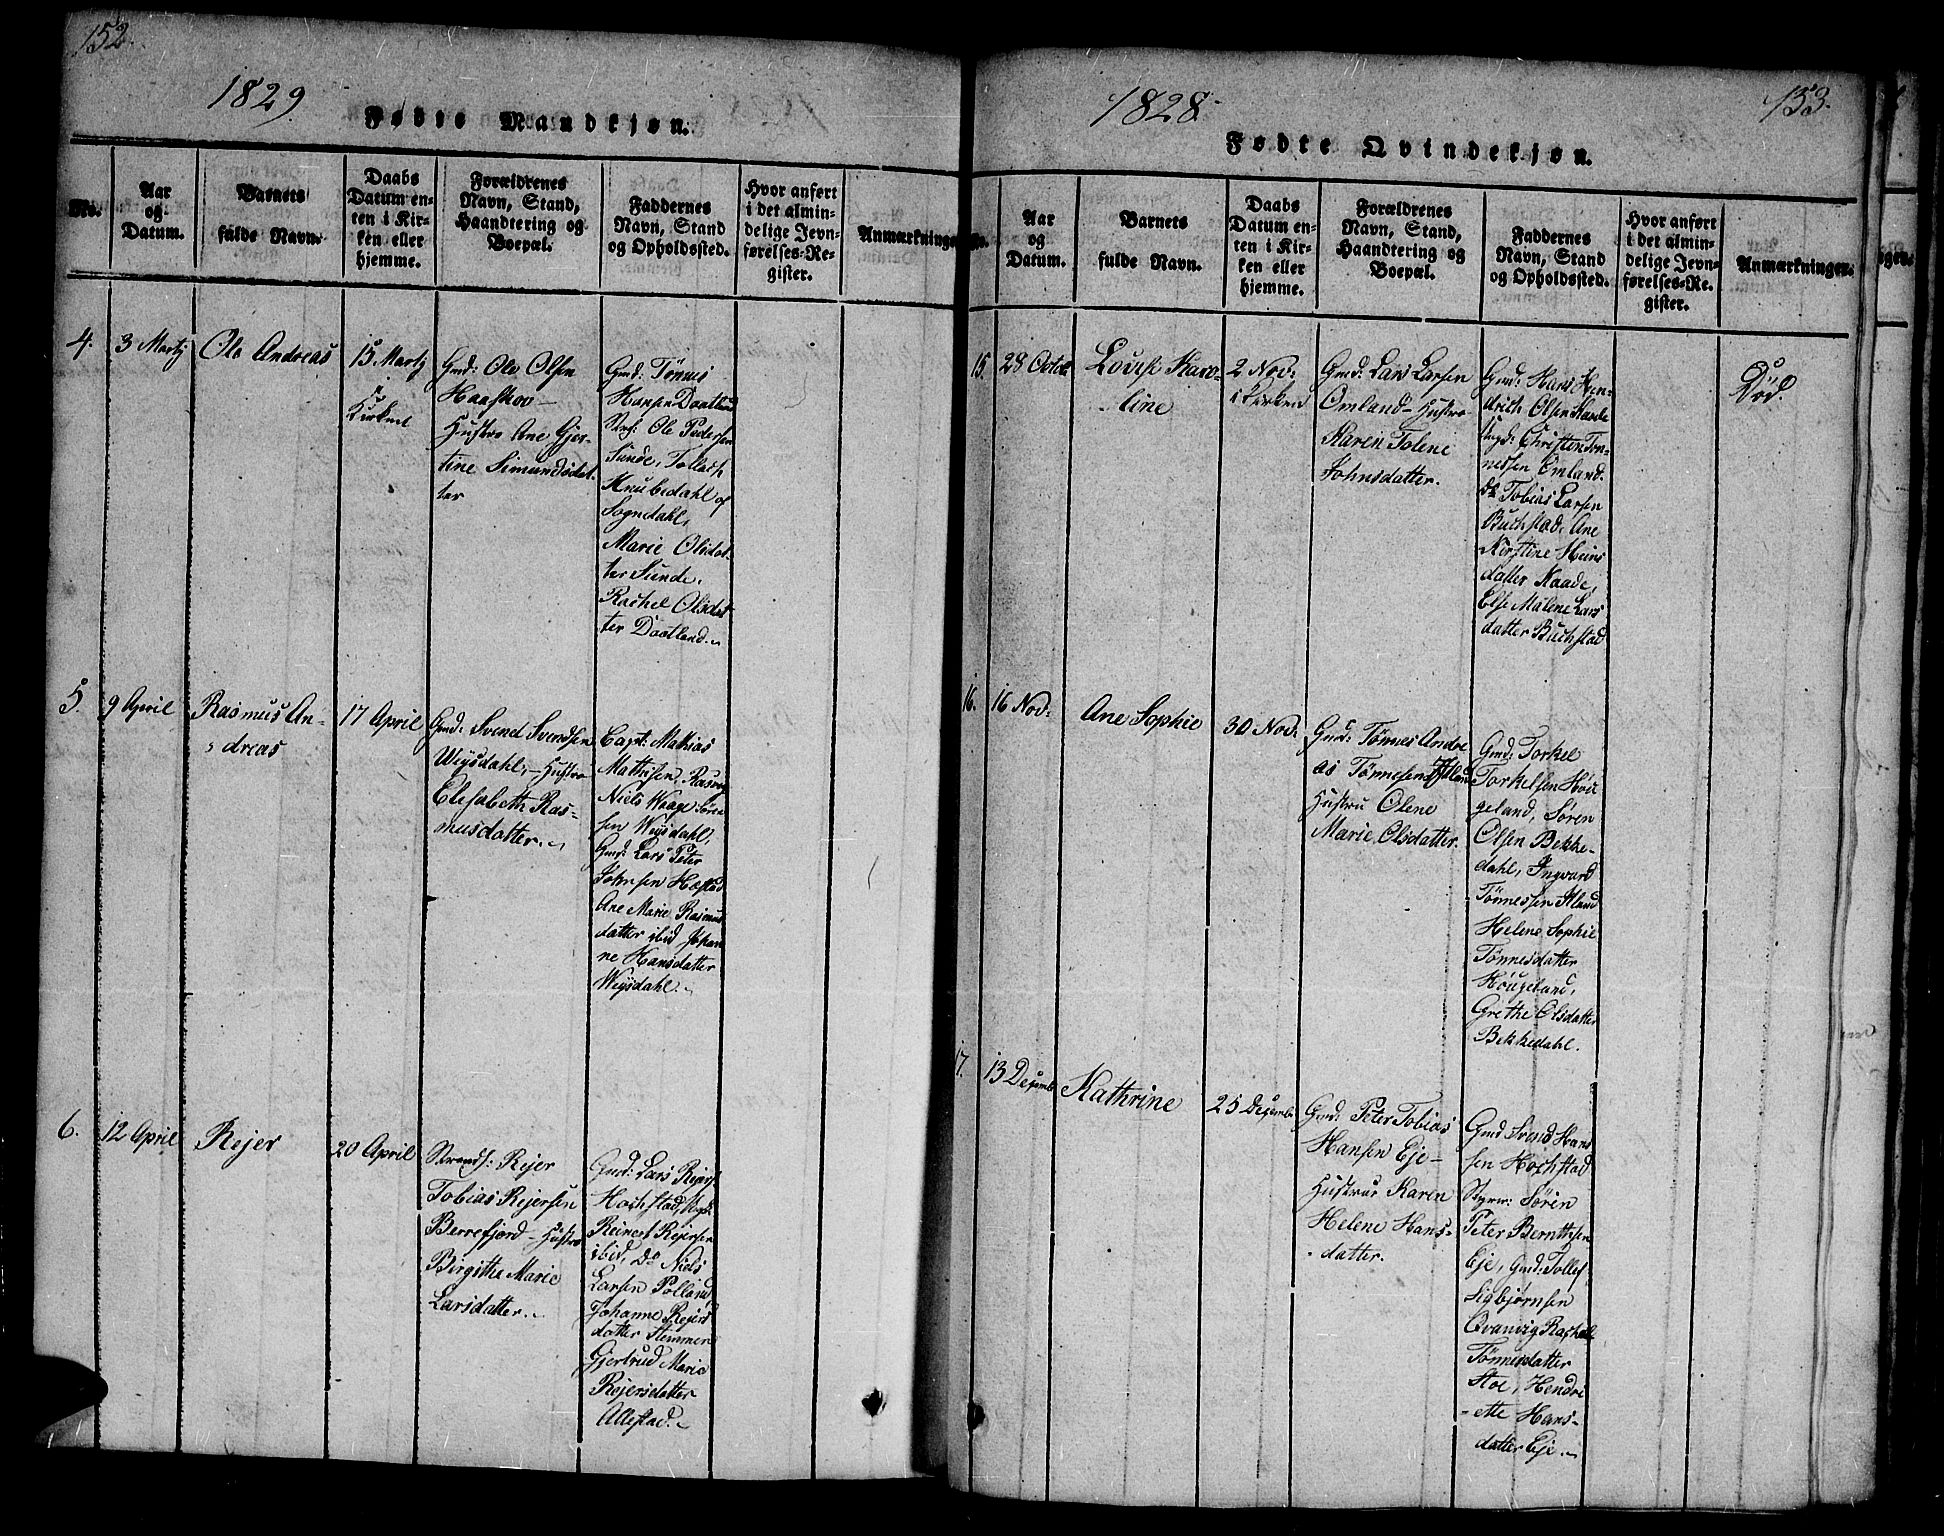 152.
1829
Fødte Mandkjøn.
No.
Aar
og
Datum.
Barnets
fulde Navn.
Daabs
Datum en-
ten i Kir-
ken eller
hjemme.
Forældrenes
Navn, Stand,
Haandtering og
Boepæl.
Faddernes
Navn, Stand
og Opholdssted.
Hvor anført
i det almin-
delige Jevn-
førelses-Re-
gister.
Anmærkninger
4.
3 Martj
Ole Andreas
15 Martj
i
Kirken
Gmd: Ole Olsen
Haaskov-
Hustro Ane Gjer-
tine Simundsdat-
ter
Gmd: Tønnes
Hansen Daatland
Ole Pedersen
Sunde, Tollach
Knubedahl af
Sognedahl,
Marie Olsdat-
ter Sunde,
Rachel Olsdat-
ter Daatland.
5.
9 April
Rasmus An-
dreas
17 April
Gmd: Svend Svendsen
Weysdahl,- Hustro
Elisabeth Ras-
musdatter.
Capt: Mathias
Mathisen Rasvog
Niels Waage Søren
sen Weysdahl,
Gmd: Lars Peter
Johnsen Hæstad
Ane Marie Rasmus
datter ibid Johan
ne Hansdatter
Weysdahl.
6.
12 April
Rejer
20 April
Strands: Rejer
Tobias Rejersen
Berrefjord - Hustro
Birgithe Marie
Larsdatter.
Gmd: Lars Rejers
Hochstad, Ungd:
Reinert Rejersen
ibid, Do Niels
Larsen Polland,
Johanne Rejers
datter Stemmen
Gjertrud Marie
Rejersdatter
Allestad.
153.
1828.
Fødte Qvindekjøn.
No.
Aar
og
Datum.
Barnets
fulde Navn.
Daabs
Datum en-
ten i Kir-
ken eller
hjemme.
Forældrenes
Navn, Stand,
Haandtering og
Boepæl.
Faddernes
Navn, Stand
og Opholdssted.
Hvor anført
i det almin-
delige Jevn-
førelses-Re-
gister.
Anmærkninger.
15.
28 Octob
Lovise Karo-
line
2 Nov:
i Kirken
Gmd: Lars Larsen
Omland- Hustro
Karen Tolene
Johnsdatter.
Gmd: Hans Hen-
drich Olsen
Ungd: Christen Tøn-
nessen Omland.
Do Tobias Larsen
Buchstad, Ane
Kirstine Heins
datter Naade,
Else Malene Lars
datter Buchstad
Død.
16.
16 Nov:
Ane Sophie
30 Nov:
Gmd: Tønnes Andre
as Tønnesen Iland
Hustru Olene
Marie Olsdatter.
Gmd: Torkel
Torkelsen Høu
geland, Søren
Olsen Bekke-
dahl, Ingvard
Tønnessen Iland
Helene Sophie
Tønnesdatter
Høugeland,
Grethe Olsdatter
Bekkedahl.
17.
13 Decemb
Kathrine
25 Decemb
Gmd: Peter Tobias
Hansen Eje-
Hustrue Karen
Helene Hans-
datter.
Gmd Svend Hans
sen Hochstad
Styrm: Søren
Peter Bernthsen
Eje, Gmd: Tollef
Sigbjørnsen
Qvanvig Rachel
Tønnesdatter
Stoe, Hendri
-ette Hans-
datter Eje.